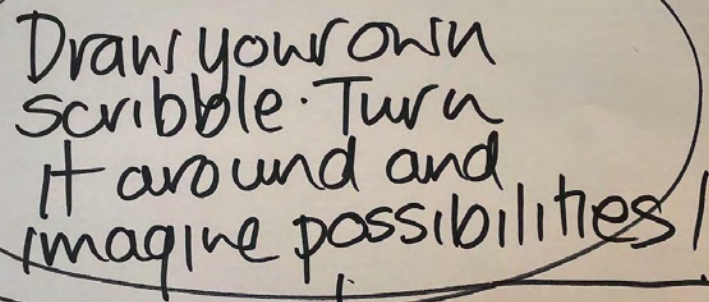 Draw your own
scribble. Turn
it around and
imagine possibilities!